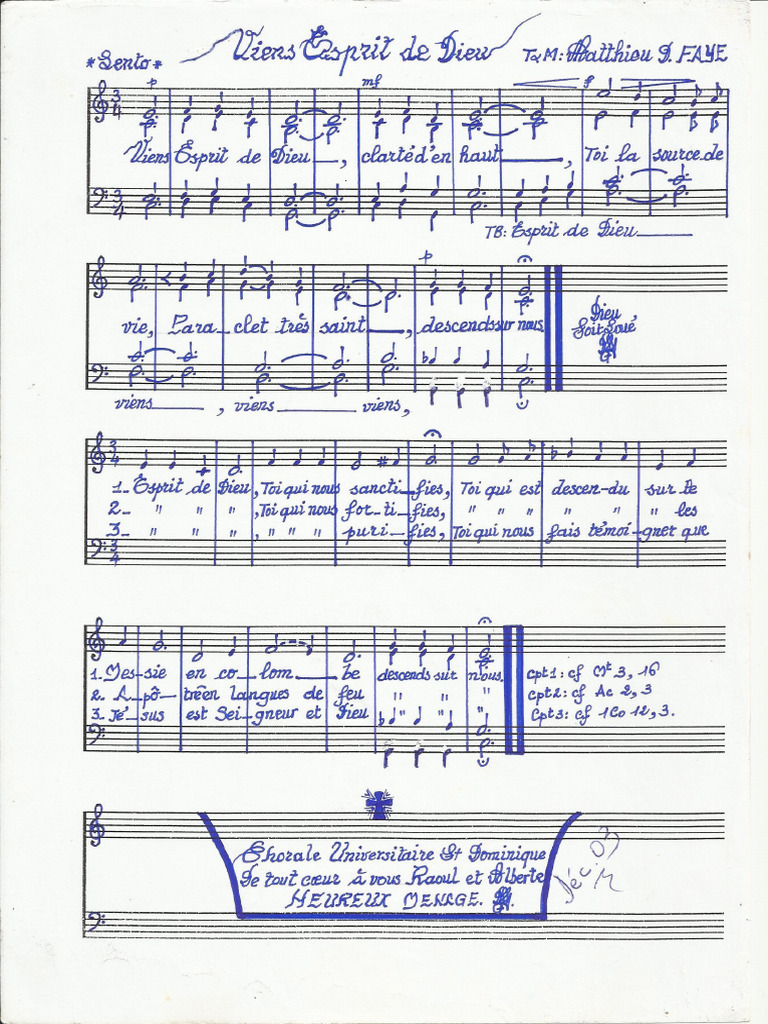 *Lento*
Viens Esprit de Dieu
T&M: Matthieu D. FAYE
p mf f
3/4
Viens Esprit de Dieu__, clarté d'en haut____, Toi la source de
TB: Esprit de Dieu____
p
vie, Para_clet très saint___, descends sur nous
Dieu
Soit Loué,
viens____, viens____ viens,
3/4
1_ Esprit de Dieu, Toi qui nous sancti_fies, Toi qui est descen-du sur te
2_ " " ", Toi qui nous for_ti_fies, " " " " " les
3_ " " ", " " " puri_fies, Toi qui nous fais témoi_gner que
1. Mes-sie en co_lom___be descends sur nous
2. A_pô_treen langues de feu " " "
3. Jé_sus est Sei_gneur et Dieu " " "
cpt1: cf Mt 3, 16
cpt2: cf Ac 2, 3
cpt3: cf 1Co 12, 3.
Chorale Universitaire St Dominique
De tout cœur à vous Raoul et Alberte
HEUREUX MENAGE.
Déc. 03